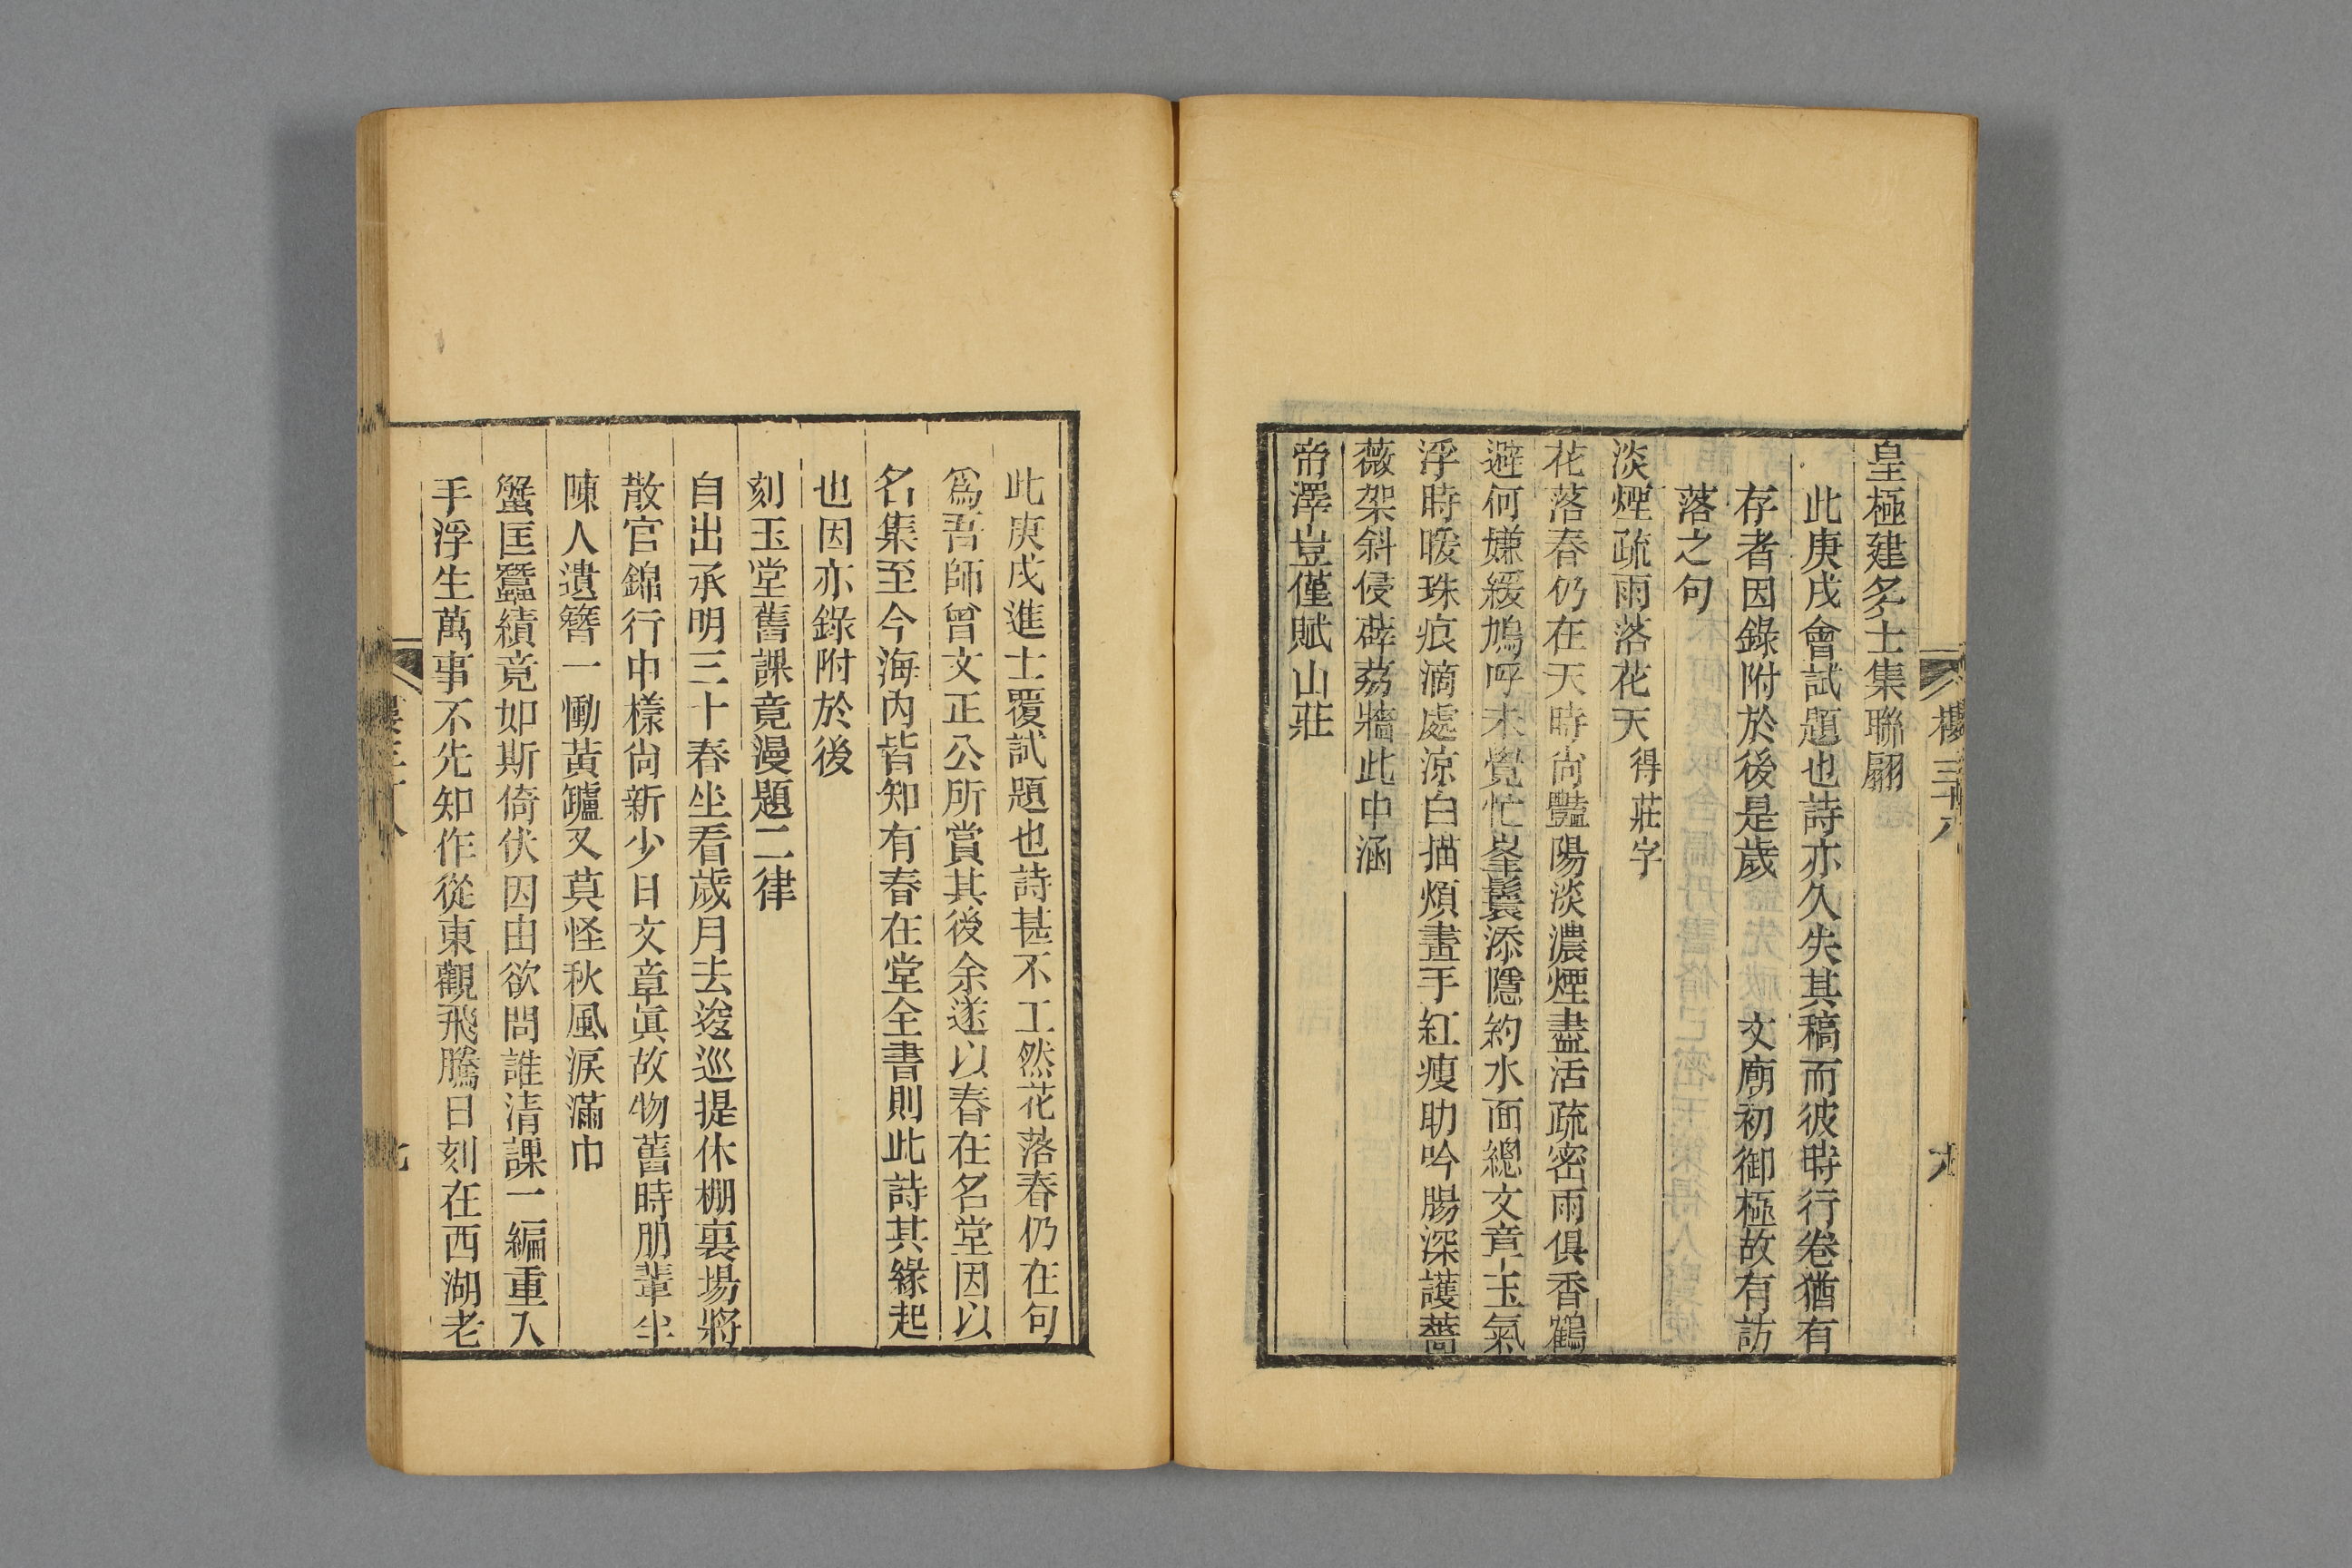 皇極建多士集聯翩
此庚戌會試題也詩亦久失其稿而彼時行卷猶有
存者因錄附於後是歲　文廟初御極故有訪
落之句
淡煙疏雨落花天得莊字
花落春仍在天時尚豔陽淡濃煙盡活疏密雨俱香鶴
避何嫌緩鳩呼未覺忙峯鬟添隱約水面總文章玉氣
浮時暖珠痕滴處涼白描煩畫手紅瘦助吟腸深護薔
薇架斜侵薜荔牆此中涵
帝澤豈僅賦山莊
樓三十八
此庚戌進士覆試題也詩甚不工然花落春仍在句
為吾師曾文正公所賞其後余遂以春在名堂因以
名集至今海內皆知有春在堂全書則此詩其緣起
也因亦錄附於後
刻玉堂舊課竟漫題二律
自出承明三十春坐看歲月去逡巡提休棚裏場將
散官錦行中樣尚新少日文章眞故物舊時朋輩半
陳人遺簪一慟黃罏又莫怪秋風淚滿巾
蟹匡蠶績竟如斯倚伏因由欲問誰清課一編重入
手浮生萬事不先知作從東觀飛騰日刻在西湖老